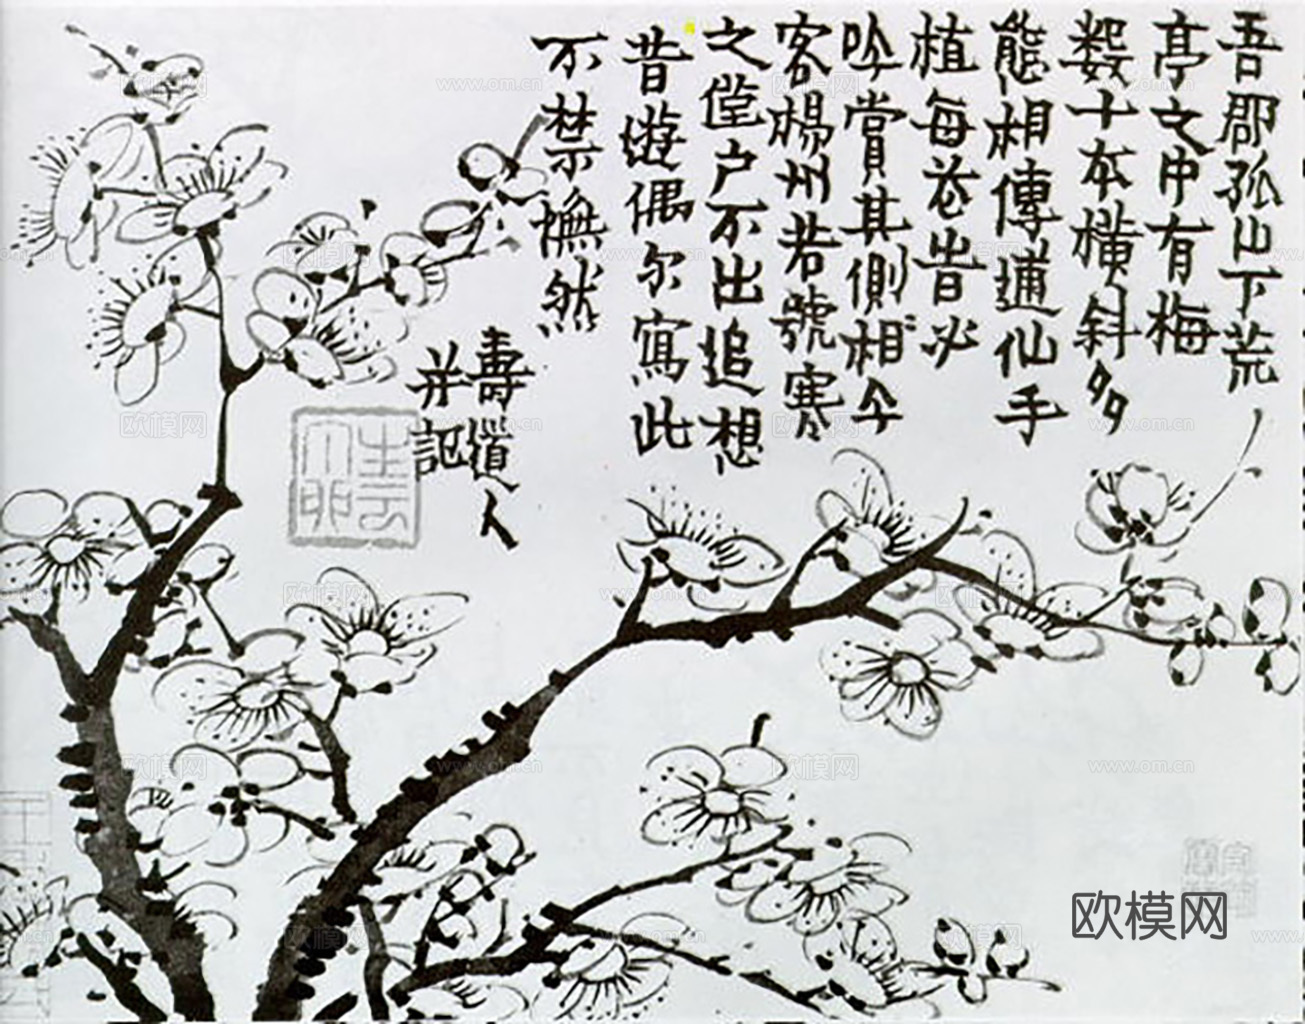 吾郡孤山下荒
亭之中有梅
数十本橫斜多
態相傳逋仙手
植每花峕必
吟賞其側相今
客楊州若號寒
之傖户不出追想
昔遊偶尔寫此
不禁憮然
壽道人
并記
欧模网